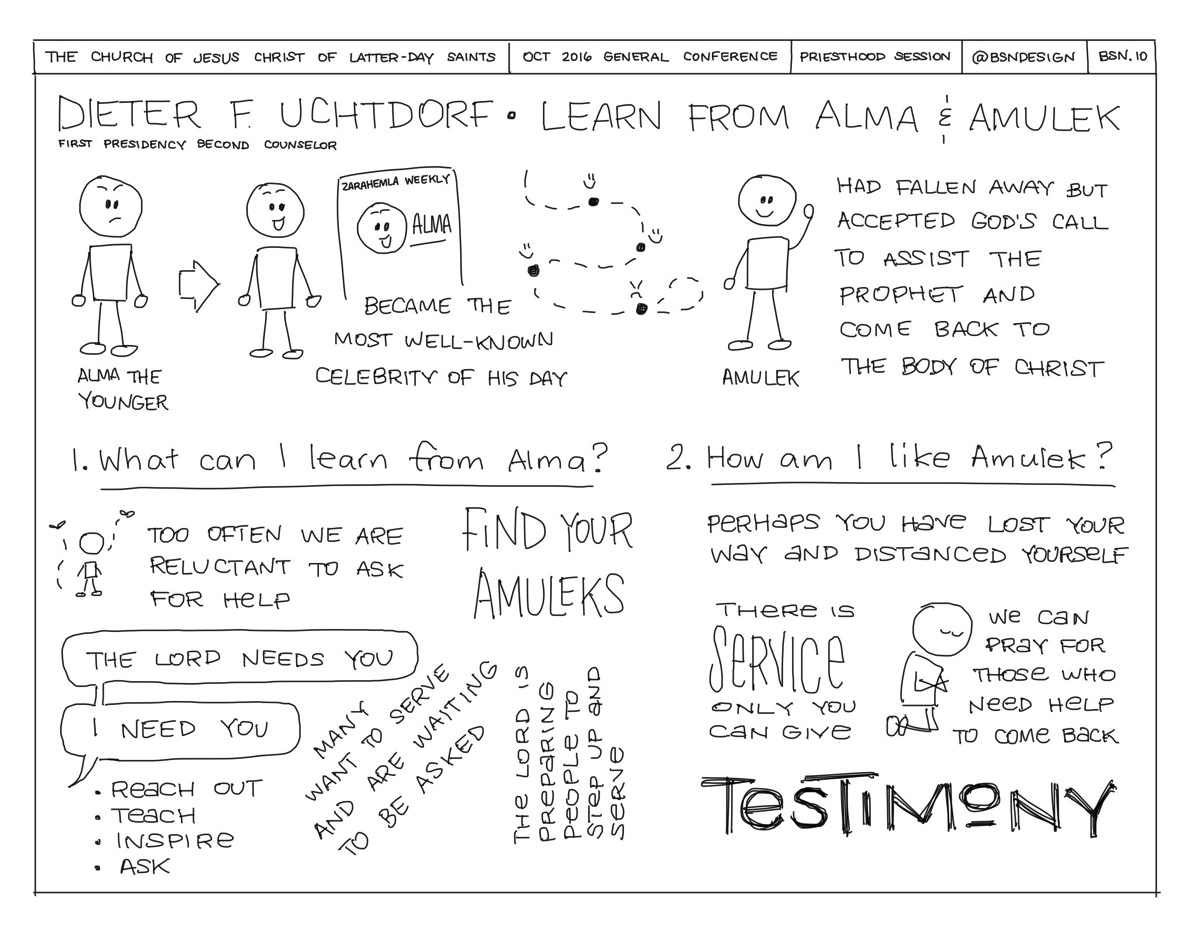 THE CHURCH OF JESUS CHRIST OF LATTER-DAY SAINTS
OCT 2016 GENERAL CONFERENCE
PRIESTHOOD SESSION
@BSNDESIGN
BSN.10
DIETER F. UCHTDORF • LEARN FROM ALMA & AMULEK
FIRST PRESIDENCY BECOND COUNSELOR
ZARAHEMLA WEEKLY
ALMA
BECAME THE
MOST WELL-KNOWN
CELEBRITY OF HIS DAY
ALMA THE
YOUNGER
AMULEK
HAD FALLEN AWAY BUT
ACCEPTED GOD'S CALL
TO ASSIST THE
PROPHET AND
COME BACK TO
THE BODY OF CHRIST
1. What can I learn from Alma?
TOO OFTEN WE ARE
RELUCTANT TO ASK
FOR HELP
FIND YOUR
AMULEKS
THE LORD NEEDS YOU
I NEED YOU
• REACH OUT
• TEACH
• INSPIRE
• ASK
MANY
WANT TO SERVE
AND ARE WAITING
TO BE ASKED
THE LORD IS
PREPARING
PEOPLE TO
STEP UP AND
SERVE
2. How am I like Amulek?
PERHAPS YOU HAVE LOST YOUR
WAY AND DISTANCED YOURSELF
THERE IS
SERVICE
ONLY YOU
CAN GIVE
WE CAN
PRAY FOR
THOSE WHO
NEED HELP
TO COME BACK
TESTIMONY